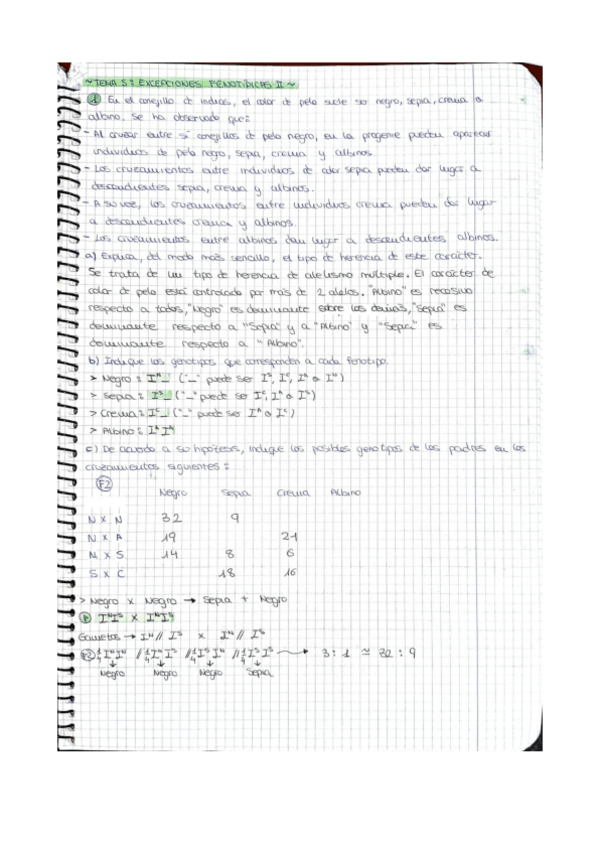 ~TEMA 5: EXCEPCIONES FENOTÍPICAS II~
1 En el conejillo de indias, el color de pelo suele ser negro, sepia, crema o
albino. Se ha observado que:
- Al cruzar entre sí conejillos de pelo negro, en la progenie pueden aparecer
individuos de pelo negro, sepia, crema y albinos.
- Los cruzamientos entre individuos de color sepia pueden dar lugar a
descendientes sepia, crema y albinos.
- A su vez, los cruzamientos entre individuos crema pueden dar lugar
a descendientes crema y albinos.
- Los cruzamientos entre albinos dan lugar a descendientes albinos.
a) Expusa, del modo más sencillo, el tipo de herencia de este carácter.
Se trata de un tipo de herencia de alelismo múltiple. El carácter de
color de pelo está controlado por más de 2 alelos. "Albino" es recesivo
respecto a todos, "Negro" es dominante sobre los demás, "Sepia" es
dominante respecto a "Sepia" y a "Albino" y "Sepia" es
dominante respecto a "Albino".
b) Indique los genotipos que corresponden a cada fenotipo.
> Negro: Iᴺ_ ("_" puede ser Iˢ, Iᶜ, Iᴬ o Iᴺ)
> Sepia: Iˢ_ ("_" puede ser Iᶜ, Iᴬ o Iˢ)
> Crema: Iᶜ_ ("_" puede ser Iᴬ o Iᶜ)
> Albino: IᴬIᴬ
c) De acuerdo a su hipótesis, indique los posibles genotipos de los padres en los
cruzamientos siguientes:
F2
Negro Sepia Crema Albino
N x N 32 9
N x A 19 21
N x S 14 8 6
S x C 18 16
> Negro x Negro → Sepia + Negro
P IᴺIˢ x IᴺIˢ
Gametos → Iᴺ // Iˢ x Iᴺ // Iˢ
F2 1/4 IᴺIᴺ // 1/4 IᴺIˢ // 1/4 IˢIᴺ // 1/4 IˢIˢ → 3:1 ≃ 32:9
Negro Negro Negro Sepia